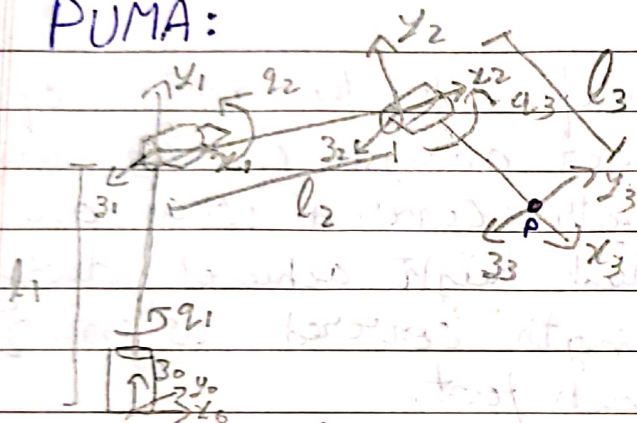 PUMA:
y₂
y₁ q₂ x₂ q₃ l₃
x₁ z₂
z₁ l₂ y₃
P
z₃ x₃
l₁
q₁
z₀ y₀
x₀